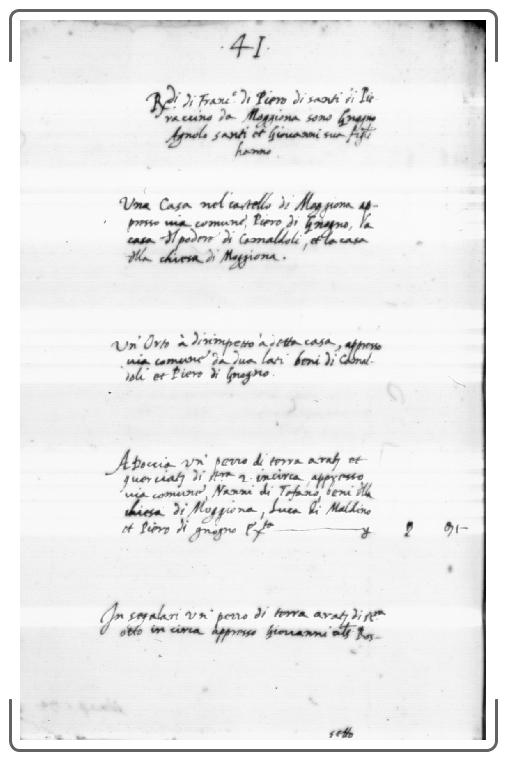 ·41·
Rdi di Franc.º di Piero di santi di Pie-
raccino da Moggiona sono Gnogno
Agnolo santi et Giovanni sua figli
hanno.
Una Casa nel castello di Moggiona ap-
presso via comune, Piero di Gnogno, la
casa del podere di Camaldoli, et la casa
della chiesa di Moggiona.
Un' Orto à dirimpetto à detta casa, appresso
via comune da dua lati beni di Camal-
doli et Piero di Gnogno.
A Doccia un' pezzo di terra
in circa appresso
via comune, Nanni di Tofano, beni della
chiesa di Moggiona, Luca di Maldino
et Piero di gnogno
In segalari un' pezzo di terra
otto in circa appresso Giovanni als Ros-
setto